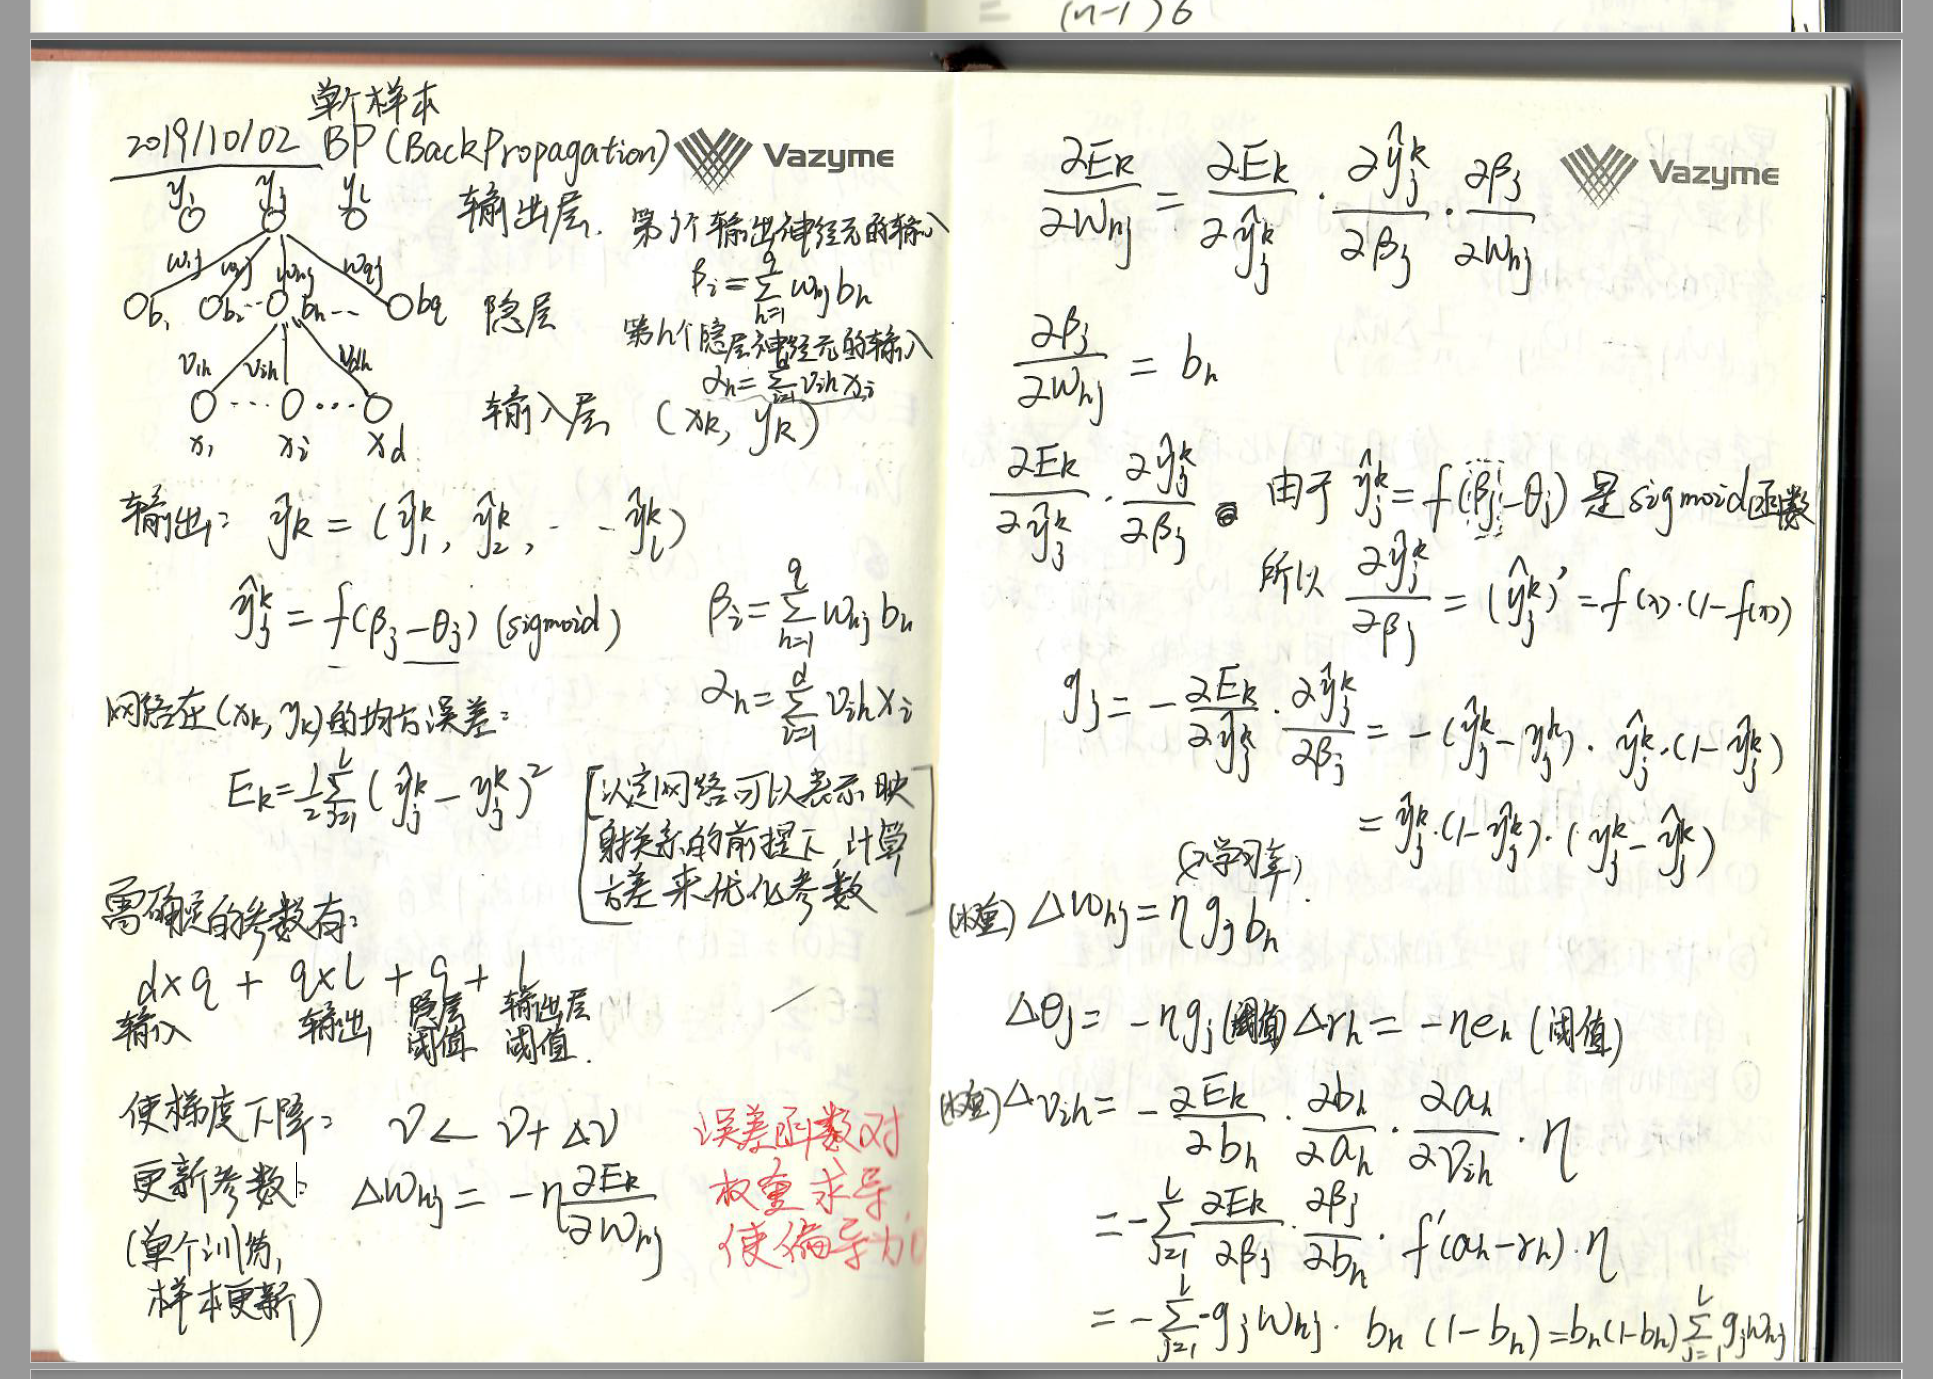 (n-1)6
单个样本
2019/10/02 BP(BackPropagation)
Vazyme
y₁ yⱼ y_l
输出层. 第j个输出神经元的输入
w₁ⱼ w₂ⱼ wₕⱼ w_qⱼ
βᵢ = Σ_{h=1}^{q} wₕⱼ bₕ
b₁ b₂ ... bₕ ... b_q 隐层
第h个隐层神经元的输入
v₁ₕ vᵢₕ v_dₕ
αₕ = Σ_{i=1}^{d} vᵢₕ xᵢ
输入层 (xₖ, yₖ)
x₁ xᵢ x_d
输出: ŷₖ = (ŷ₁ᵏ, ŷ₂ᵏ, - - ŷ_lᵏ)
ŷⱼᵏ = f(βⱼ - θⱼ) (sigmoid)
βᵢ = Σ_{h=1}^{q} wₕⱼ bₕ
αₕ = Σ_{i=1}^{d} vᵢₕ xᵢ
网络在(xₖ, yₖ)的均方误差:
Eₖ = 1/2 Σ_{j=1}^{L} (ŷⱼᵏ - yⱼᵏ)²
[认定网络可以表示映
射关系的前提下,计算
方差来优化参数]
需确定的参数有:
d×q + q×l + q + L
输入 输出 隐层阈值 输出层阈值.
使梯度下降: v ← v + Δv
更新参数: Δwₕⱼ = -η ∂Eₖ/∂wₕⱼ
(单个训练,
样本更新)
误差函数对
权重求导
使偏导为0
Vazyme
∂Eₖ/∂wₕⱼ = ∂Eₖ/∂ŷⱼᵏ · ∂ŷⱼᵏ/∂βⱼ · ∂βⱼ/∂wₕⱼ
∂βⱼ/∂wₕⱼ = bₕ
∂Eₖ/∂ŷⱼᵏ · ∂ŷⱼᵏ/∂βⱼ 由于 ŷⱼᵏ = f(βⱼ - θⱼ) 是sigmoid函数
所以 ∂ŷⱼᵏ/∂βⱼ = (ŷⱼᵏ)' = f(x)·(1-f(x))
gⱼ = - ∂Eₖ/∂ŷⱼᵏ · ∂ŷⱼᵏ/∂βⱼ = -(ŷⱼᵏ - yⱼᵏ) · ŷⱼᵏ·(1-ŷⱼᵏ)
= ŷⱼᵏ·(1-ŷⱼᵏ)·(yⱼᵏ - ŷⱼᵏ)
学习率)
(权重) Δwₕⱼ = η gⱼ bₕ
Δθⱼ = -ηgⱼ (阈值) Δrₕ = -ηeₕ (阈值)
(权重) Δvᵢₕ = - ∂Eₖ/∂bₕ · ∂bₕ/∂aₕ · ∂aₕ/∂vᵢₕ · η
= - Σ_{j=1}^{L} ∂Eₖ/∂βⱼ · ∂βⱼ/∂bₕ · f'(aₕ - rₕ) · η
= - Σ_{j=1}^{L} -gⱼ wₕⱼ · bₕ (1-bₕ) = bₕ(1-bₕ) Σ_{j=1}^{L} gⱼ wₕⱼ